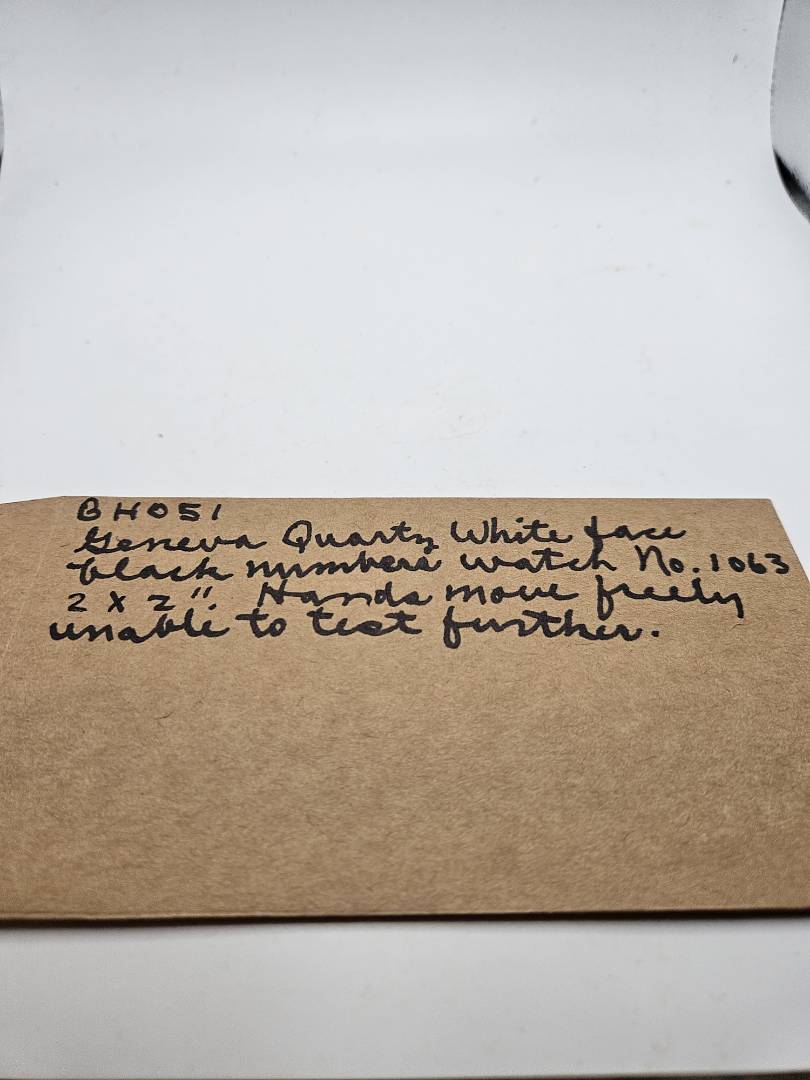 BH051
Geneva Quartz White face
black numbers watch No. 1063
2 x 2". Hands move freely
unable to test further.